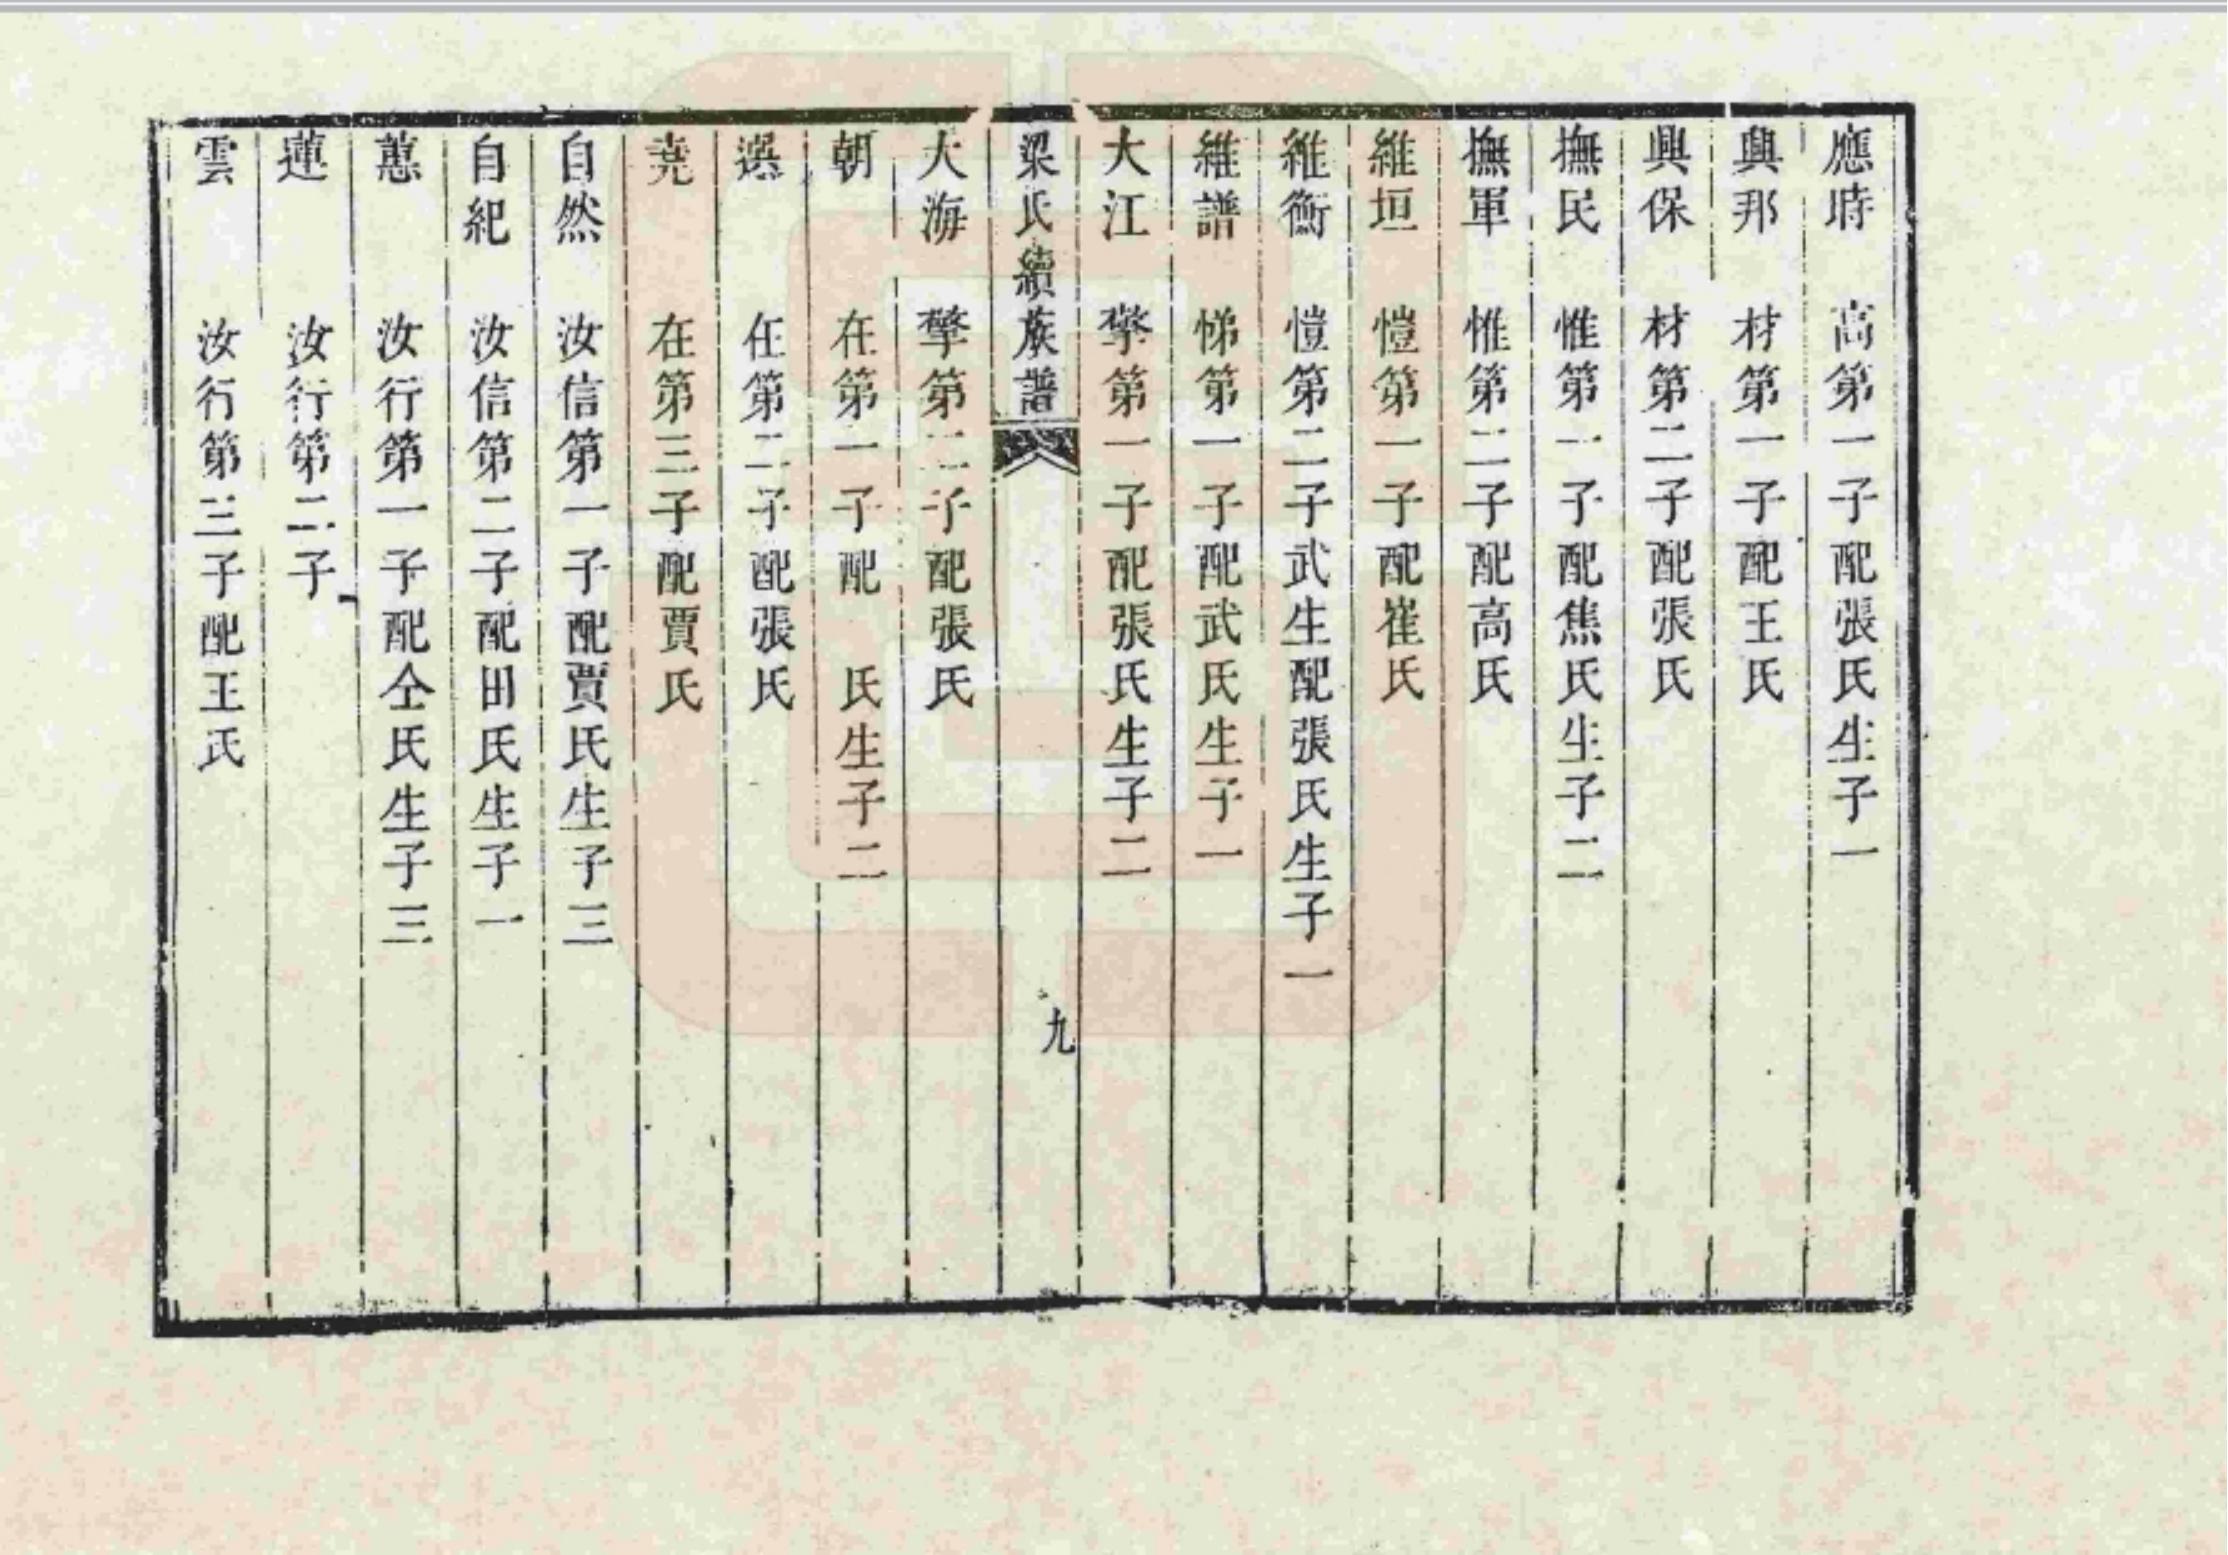 應時 高第一子配張氏生子一
興邦 材第一子配王氏
興保 材第二子配張氏
撫民 惟第一子配焦氏生子二
撫軍 惟第二子配高氏
維垣 愷第一子配崔氏
維衡 愷第二子武生配張氏生子一
維譜 悌第一子配武氏生子一
大江 擎第一子配張氏生子二
梁氏續族譜
九
大海 擎第二子配張氏
朝 在第一子配 氏生子二
選 在第二子配張氏
堯 在第三子配賈氏
自然 汝信第一子配賈氏生子三
自紀 汝信第二子配田氏生子一
蕙 汝行第一子配仝氏生子三
蓮 汝行第二子
雲 汝行第三子配王氏